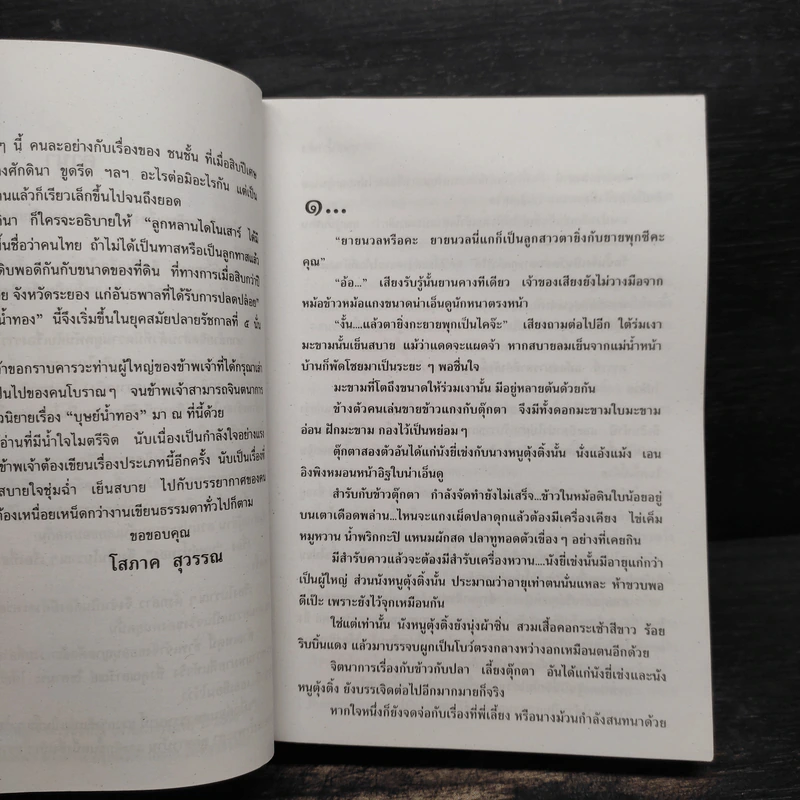 ๆ นี้ คนละอย่างกับเรื่องของ ชนชั้น ที่เมื่อสิบปีเศษ
งศักดินา ขูดรีด ฯลฯ อะไรต่อมิอะไรกัน แต่เป็น
านแล้วก็เรียวเล็กขึ้นไปจนถึงยอด
ดินา ก็ใครจะอธิบายให้ “ลูกหลานไดโนเสาร์ ได้มี
ขึ้นชื่อว่าคนไทย ถ้าไม่ได้เป็นทาสหรือเป็นลูกทาสแล้ว
ดิบพอดีกันกับขนาดของที่ดิน ที่ทางการเมื่อสิบกว่าปี
ย จังหวัดระยอง แก่อันธพาลที่ได้รับการปลดปล่อย”
น้ำทอง” นี้จึงเริ่มขึ้นในยุคสมัยปลายรัชกาลที่ ๕ นั้น
าขอกราบคารวะท่านผู้ใหญ่ของข้าพเจ้าที่ได้กรุณาเล่า
เป็นไปของคนโบราณๆ จนข้าพเจ้าสามารถจินตนาการ
วนิยายเรื่อง “บุษย์น้ำทอง” มา ณ ที่นี้ด้วย
อ่านที่มีน้ำใจไมตรีจิต นับเนื่องเป็นกำลังใจอย่างแรง
ข้าพเจ้าต้องเขียนเรื่องประเภทนี้อีกครั้ง นับเป็นเรื่องที่
สบายใจชุ่มฉ่ำ เย็นสบาย ไปกับบรรยากาศของคน
ต้องเหนื่อยเหน็ดกว่างานเขียนธรรมดาทั่วไปก็ตาม
ขอขอบคุณ
โสภาค สุวรรณ
๑...
“ยายนวลหรือคะ ยายนวลนี่แกก็เป็นลูกสาวตายิ่งกับยายพุกซีคะ
คุณ”
“อ้อ...” เสียงรับรู้นั้นยานคางทีเดียว เจ้าของเสียงยังไม่วางมือจาก
หม้อข้าวหม้อแกงขนาดน่าเอ็นดูนักหนาตรงหน้า
“งั้น....แล้วตายิ่งกะยายพุกเป็นไคจ๊ะ” เสียงถามต่อไปอีก ใต้ร่มเงา
มะขามนั้นเย็นสบาย แม้ว่าแดดจะแผดจ้า หากสบายลมเย็นจากแม่น้ำหน้า
บ้านก็พัดโชยมาเป็นระยะ ๆ พอชื่นใจ
มะขามที่โตถึงขนาดให้ร่มเงานั้น มีอยู่หลายต้นด้วยกัน
ข้างตัวคนเล่นขายข้าวแกงกับตุ๊กตา จึงมีทั้งดอกมะขามใบมะขาม
อ่อน ฝักมะขาม กองไว้เป็นหย่อมๆ
ตุ๊กตาสองตัวอันได้แก่นังยี่เข่งกับนางหนูตุ้งติ้งนั้น นั่งแอ้งแม้ง เอน
อิงพิงหมอนหน้าอิฐใบน่าเอ็นดู
สำรับกับข้าวตุ๊กตา กำลังจัดทำยังไม่เสร็จ...ข้าวในหม้อดินใบน้อยอยู่
บนเตาเดือดพล่าน...ไหนจะแกงเผ็ดปลาดุกแล้วต้องมีเครื่องเคียง ไข่เค็ม
หมูหวาน น้ำพริกกะปิ แหนมผักสด ปลาทูทอดตัวเขื่องๆ อย่างที่เคยกิน
มีสำรับคาวแล้วจะต้องมีสำรับเครื่องหวาน....นังยี่เข่งนั้นมีอายุแก่กว่า
เป็นผู้ใหญ่ ส่วนนังหนูตุ้งติ้งนั้น ประมาณว่าอายุเท่าตนนั่นแหละ ห้าขวบพอ
ดีเป๊ะ เพราะยังไว้จุกเหมือนกัน
ใช่แต่เท่านั้น นังหนูตุ้งติ้งยังนุ่งผ้าซิ่น สวมเสื้อคอกระเช้าสีขาว ร้อย
ริบบิ้นแดง แล้วมาบรรจบผูกเป็นโบว์ตรงกลางหว่างอกเหมือนตนอีกด้วย
จิตนาการเรื่องกับข้าวกับปลา เลี้ยงตุ๊กตา อันได้แก่นังยี่เข่งและนัง
หนูตุ้งติ้ง ยังบรรเจิดต่อไปอีกมากมายก็จริง
หากใจหนึ่งก็ยังจดจ่อกับเรื่องที่พี่เลี้ยง หรือนางม้วนกำลังสนทนาด้วย